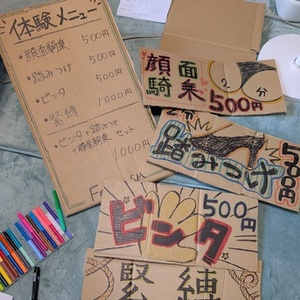 体験メニュー
・顔面騎乗
500円
・踏みつけ
500円
・ビンタ
500円
・緊縛
1000円
・ビンタ+踏みつけ
+顔面騎乗 セット
1000円
顔面
騎乗
2分
500円
2分
踏みつけ
500円
ビンタ
500円
緊縛